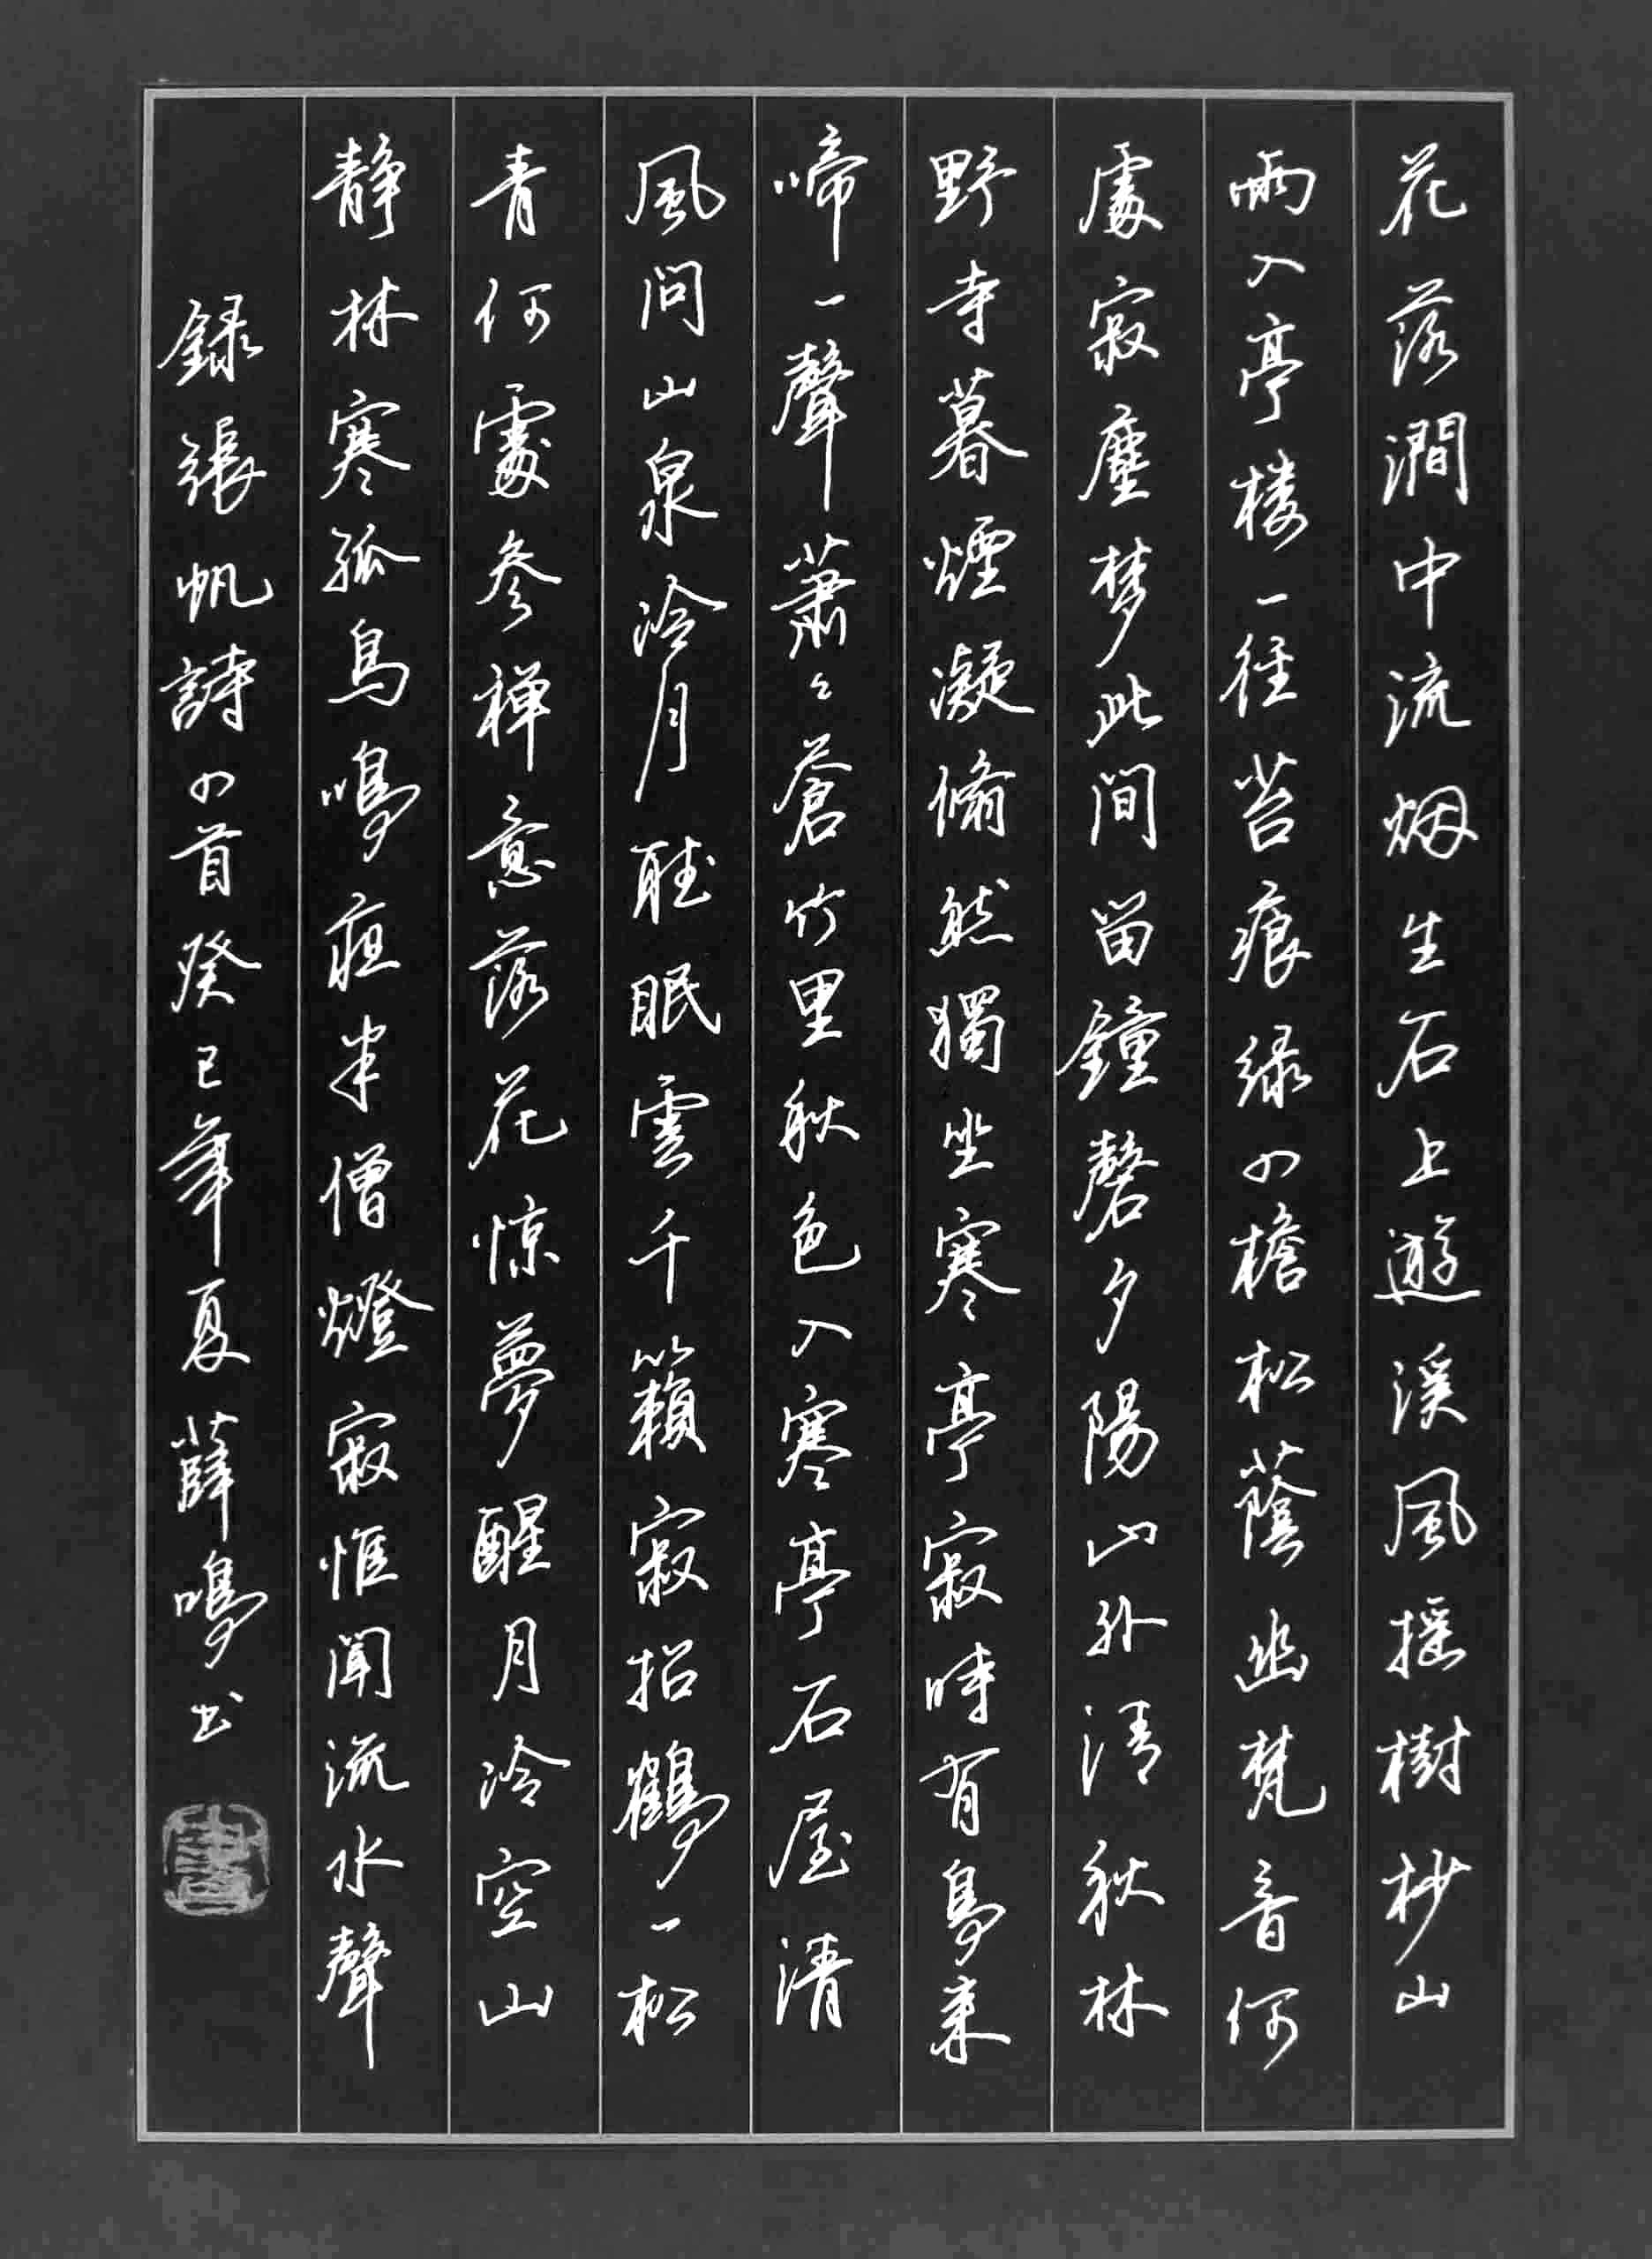 花落澗中流烟生石上遊溪風摇樹杪山
雨入亭楼一径苔痕緑四檐松蔭幽梵音何
處寂塵梦此间留鐘磬夕陽山外清秋林
野寺暮煙凝翛然獨坐寒亭寂時有鳥来
啼一聲蕭々蒼竹里秋色入寒亭石屋清
風问山泉冷月聴眠雲千籟寂招鶴一松
青何處参禅意落花惊夢醒月冷空山
静林寒孤鸟鳴夜半僧燈寂惟闻流水聲
録張帆詩四首癸巳年夏薛鳴书